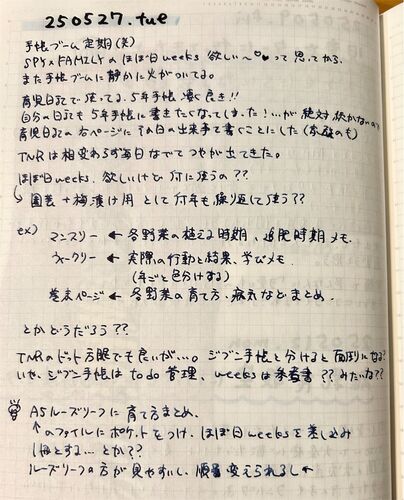 250527.tue
手帳ブーム定期(笑)
SPY×FAMILYのほぼ日weeks欲しい〜♡♥って思ってから、
また手帳ブームに静かに火がついてる。
育児日記で使ってる5年手帳凄く良き!!
自分の日記も5年手帳に書きたくなってしまった!…が絶対続かないので
育児日記の右ページにその日の出来事て書くことにした(余談のも)
TNRは相変わらず毎日なでてつやが出てきた。
ほぼ日weeks、欲しいけど何に使うの??
園芸+梅漬け用として何年も繰り返して使う??
ex) マンスリー ← 各野菜の植える時期、追肥時期メモ
ウィークリー ← 実際の行動と結果、学びメモ
(年ごと色分けする)
巻末ページ ← 各野菜の育て方、病気などまとめ
とかどうだろう??
TNRのドット方眼でも良いが…。ジブン手帳と分けると面倒になる?
いや、ジブン手帳はtodo管理、weeksは参考書??みたいな??
A5ルーズリーフに育て方まとめ、
↑のファイルにポケットをつけ、ほぼ日weeksを差し込み
1冊とする…とか??
ルーズリーフの方が見やすいし、順番変えられるし←